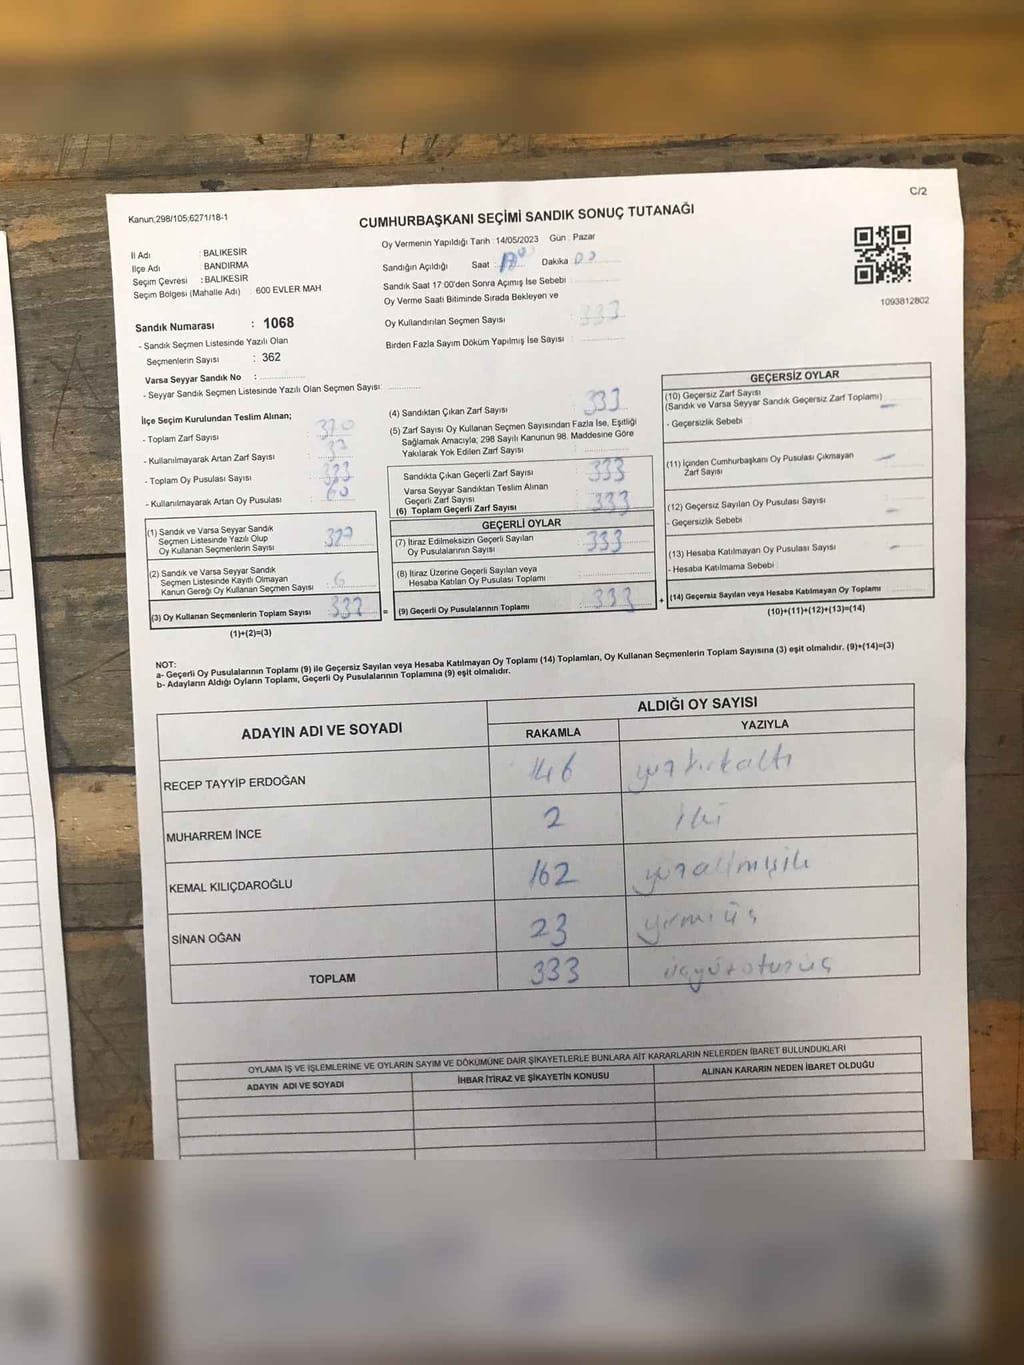 C/2
Kanun;298/105;6271/18-1
CUMHURBAŞKANI SEÇİMİ SANDIK SONUÇ TUTANAĞI
İl Adı : BALIKESİR
İlçe Adı : BANDIRMA
Seçim Çevresi : BALIKESİR
Seçim Bölgesi (Mahalle Adı) : 600 EVLER MAH
Sandık Numarası : 1068
- Sandık Seçmen Listesinde Yazılı Olan
Seçmenlerin Sayısı : 362
Varsa Seyyar Sandık No :
- Seyyar Sandık Seçmen Listesinde Yazılı Olan Seçmen Sayısı:
Oy Vermenin Yapıldığı Tarih :14/05/2023 Gün : Pazar
Sandığın Açıldığı Saat : Dakika
Sandık Saat 17:00'den Sonra Açımış İse Sebebi :
Oy Verme Saati Bitiminde Sırada Bekleyen ve
Oy Kullandırılan Seçmen Sayısı : 333
Birden Fazla Sayım Döküm Yapılmış İse Sayısı :
1093812802
İlçe Seçim Kurulundan Teslim Alınan;
- Toplam Zarf Sayısı : 370
- Kullanılmayarak Artan Zarf Sayısı : 37
- Toplam Oy Pusulası Sayısı :
- Kullanılmayarak Artan Oy Pusulası : 60
(1) Sandık ve Varsa Seyyar Sandık
Seçmen Listesinde Yazılı Olup
Oy Kullanan Seçmenlerin Sayısı : 327
(2) Sandık ve Varsa Seyyar Sandık
Seçmen Listesinde Kayıtlı Olmayan
Kanun Gereği Oy Kullanan Seçmen Sayısı : 6
(3) Oy Kullanan Seçmenlerin Toplam Sayısı :
(1)+(2)=(3)
(4) Sandıktan Çıkan Zarf Sayısı : 333
(5) Zarf Sayısı Oy Kullanan Seçmen Sayısından Fazla İse, Eşitliği
Sağlamak Amacıyla; 298 Sayılı Kanunun 98. Maddesine Göre
Yakılarak Yok Edilen Zarf Sayısı :
Sandıkta Çıkan Geçerli Zarf Sayısı : 333
Varsa Seyyar Sandıktan Teslim Alınan
Geçerli Zarf Sayısı :
(6) Toplam Geçerli Zarf Sayısı : 333
GEÇERLİ OYLAR
(7) İtiraz Edilmeksizin Geçerli Sayılan
Oy Pusulalarının Sayısı : 333
(8) İtiraz Üzerine Geçerli Sayılan veya
Hesaba Katılan Oy Pusulası Toplamı :
= (9) Geçerli Oy Pusulalarının Toplamı : 333 +
GEÇERSİZ OYLAR
(10) Geçersiz Zarf Sayısı
(Sandık ve Varsa Seyyar Sandık Geçersiz Zarf Toplamı) : -
- Geçersizlik Sebebi :
(11) İçinden Cumhurbaşkanı Oy Pusulası Çıkmayan
Zarf Sayısı : -
(12) Geçersiz Sayılan Oy Pusulası Sayısı : -
- Geçersizlik Sebebi :
(13) Hesaba Katılmayan Oy Pusulası Sayısı : -
- Hesaba Katılmama Sebebi :
(14) Geçersiz Sayılan veya Hesaba Katılmayan Oy Toplamı :
(10)+(11)+(12)+(13)=(14)
NOT:
a- Geçerli Oy Pusulalarının Toplamı (9) ile Geçersiz Sayılan veya Hesaba Katılmayan Oy Toplamı (14) Toplamları, Oy Kullanan Seçmenlerin Toplam Sayısına (3) eşit olmalıdır. (9)+(14)=(3)
b- Adayların Aldığı Oyların Toplamı, Geçerli Oy Pusulalarının Toplamına (9) eşit olmalıdır.
ADAYIN ADI VE SOYADI
ALDIĞI OY SAYISI
RAKAMLA YAZIYLA
RECEP TAYYİP ERDOĞAN 146 yüzkırkaltı
MUHARREM İNCE 2 iki
KEMAL KILIÇDAROĞLU 162 yüzaltmışiki
SİNAN OĞAN 23 yirmiüç
TOPLAM 333 üçyüzotuzüç
OYLAMA İŞ VE İŞLEMLERİNE VE OYLARIN SAYIM VE DÖKÜMÜNE DAİR ŞİKAYETLERLE BUNLARA AİT KARARLARIN NELERDEN İBARET BULUNDUKLARI
ADAYIN ADI VE SOYADI İHBAR İTİRAZ VE ŞİKAYETİN KONUSU ALINAN KARARIN NEDEN İBARET OLDUĞU